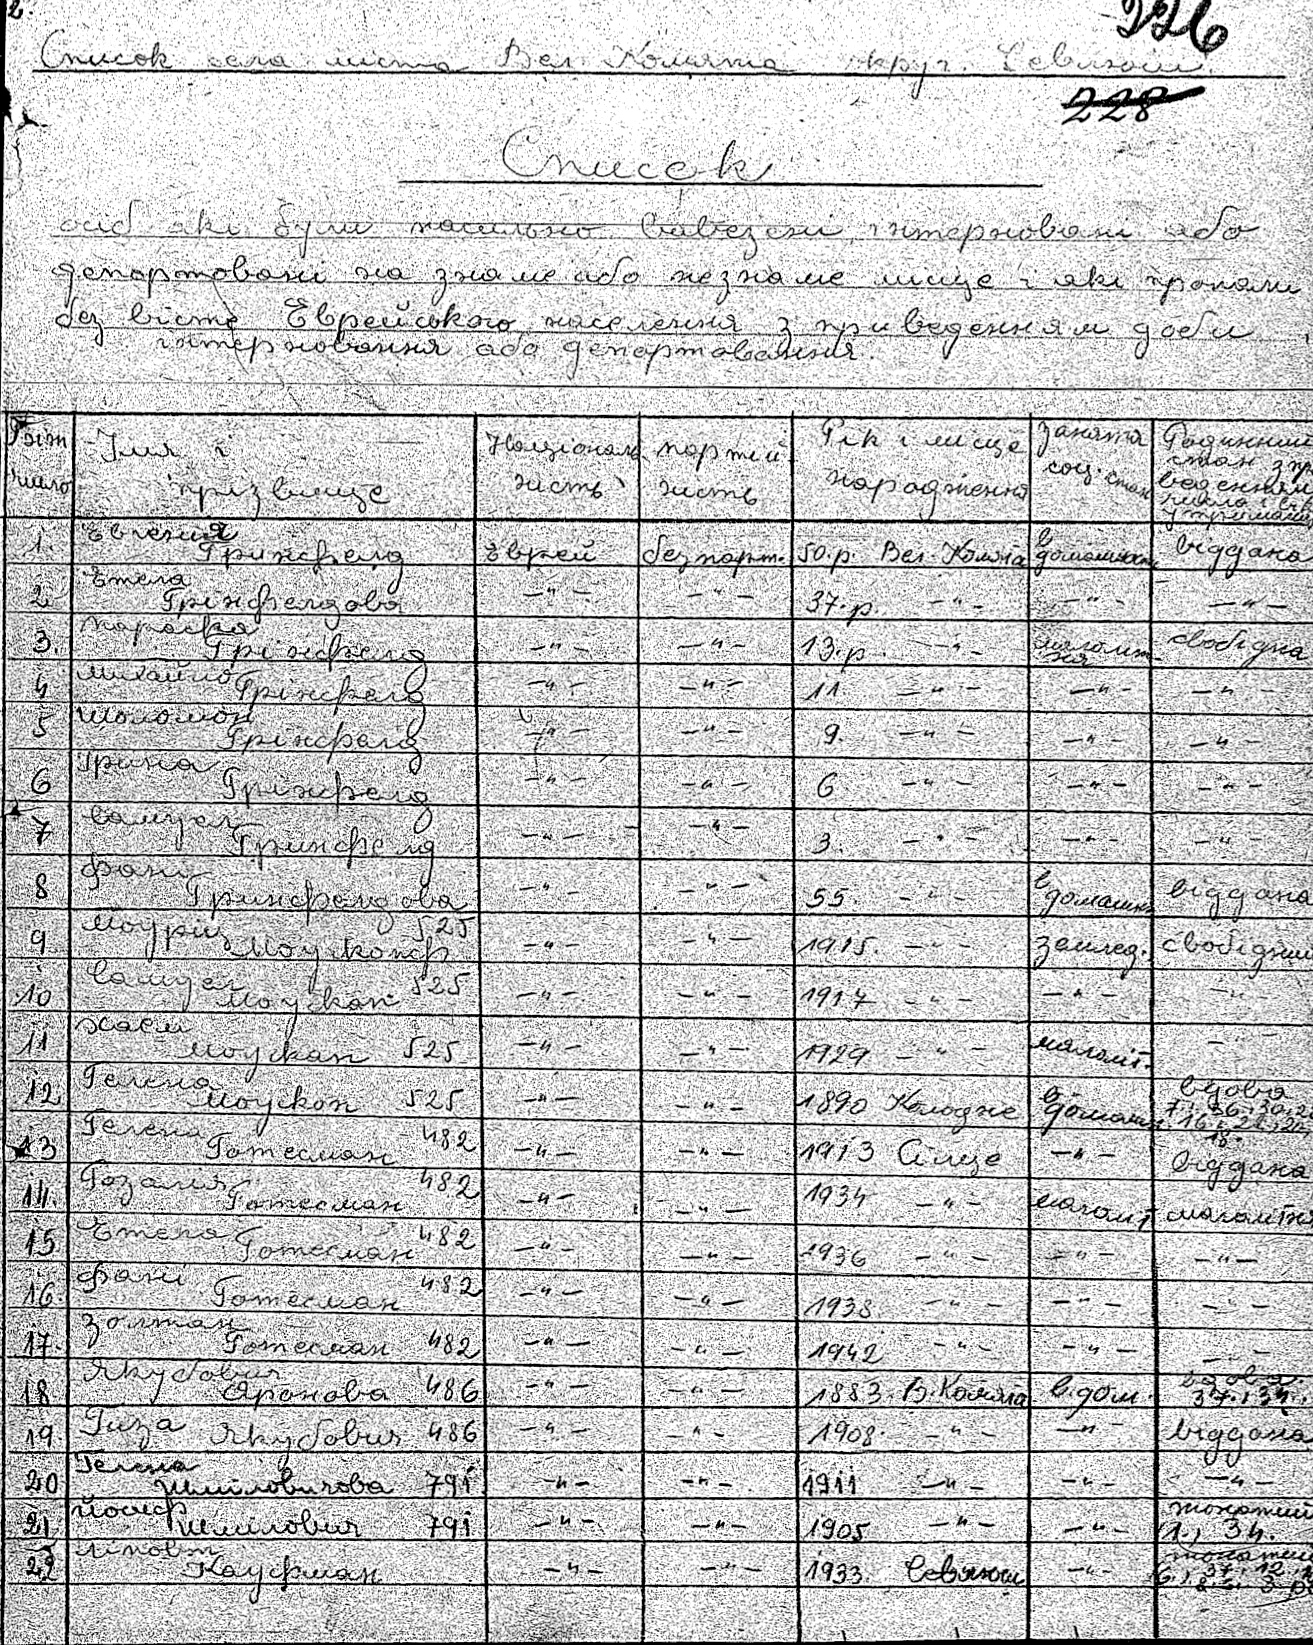 2.
226
Список села міста Вел. Комята округ. Севлюш.
228
Список
осіб які були насильно вивезені, інтерновані або
депортовані на знаме або незнаме місце і які пропали
без вісти Еврейського населення з приведенням доби
інтерновання або депортовання.
число
Імя і прізвище
Націонал ність
партій ність
Рік і місце народження
Заняття соц. стан
Родинний стан з при веденням числа
1. Грінфелд Еврей безпарт. 50.р. Вел. Комята в домашн. віддана
2 Етела Грінфелдова -"- -"- 37.р -"- -"- -"-
3. Параска Грінфелд -"- -"- 13.р. -"- свобідна
4 Михайло Грінфелд -"- -"- 11 -"- -"- -"-
5 Шоломон Грінфелд -"- -"- 9. -"- -"- -"-
6 Ірина Грінфелд -"- -"- 6 -"- -"- -"-
7 Самуел Грінфелд -"- -"- 3. -"- -"- -"-
8 Фані Грінфелдова -"- -"- 55. -"- в домашн. віддана
9 Моуріц 525 -"- -"- 1915. -"- землед. свобідний
10 Самуел Моускоп 525 -"- -"- 1917 -"- -"- -"-
11 Моускоп 525 -"- -"- 1929 -"- малоліт. -"-
12 Гелена Моускоп 525 -"- -"- 1890 в домашн. вдова
13 Гелена Готесман 482 -"- -"- 1913 Сілце -"- віддана
14. Розалія Готесман 482 -"- -"- 1934 -"- малоліт. малолітня
15 Етела Готесман 482 -"- -"- 1936 -"- -"- -"-
16. Фані Готесман 482 -"- -"- 1938 -"- -"- -"-
17. Золтан Готесман 482 -"- -"- 1942 -"- -"- -"-
18 Якубович Аронова 486 -"- -"- 1883. В. Комята в дом. вдова
19. Гиза Якубович 486 -"- -"- 1908. -"- -"- віддана
20 Гелена Шмиловичова 791 -"- -"- 1911 -"- -"- -"-
21. Йосиф Шмілович 791 -"- -"- 1905 -"- -"- 1., 34.
22 Кауфман -"- -"- 1933. Севлюш -"-